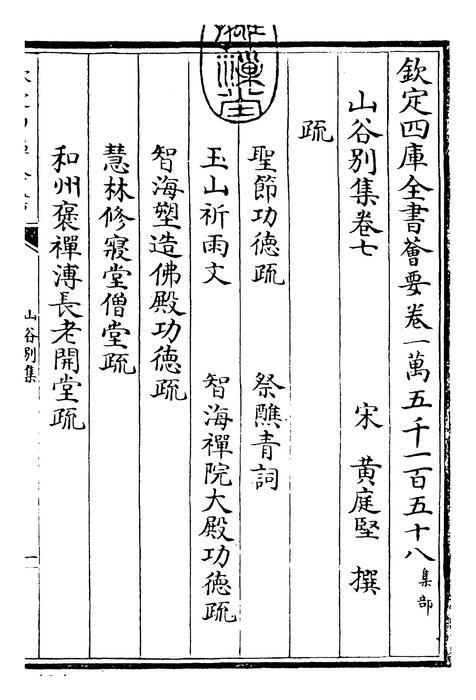 欽定四庫全書薈要卷一萬五千一百五十八 集部
山谷別集卷七 宋 黃庭堅 撰
疏
聖節功德疏 祭醮青詞
玉山祈雨文 智海禪院大殿功德疏
智海塑造佛殿功德疏
慧林修寢堂僧堂疏
和州褒禪溥長老開堂疏
山谷別集
一